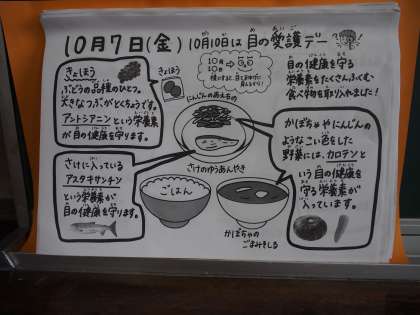 10月7日(金) 10月10日は 目の愛護デー
きょほう
ぶどうの品種のひとつ。
大きなつぶがとくちょうです。
アントシアニンという栄養素
が目の健康を守ります。
きょほう
10月
10日
目の健康を守る
栄養素をたくさんふくむ
食べ物を取り入れました!
にんじんのあえもの
さけのゆうあんやき
かぼちゃやにんじんの
ようなこい色をした
野菜には、カロテンと
いう目の健康を
守る栄養素が
入っています。
さけに入っている
アスタキサンチン
という栄養素が
目の健康を守ります。
ごはん
かぼちゃの
ごまみそしる